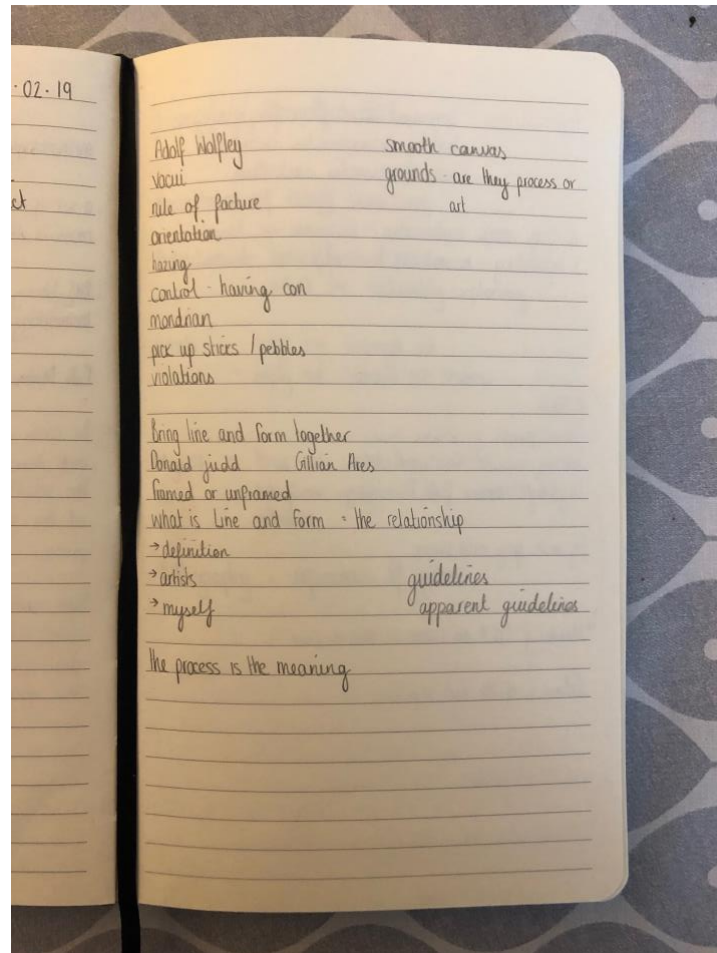 .02.19
ct
Adolf Wolfley
vacui
rule of facture
orientation
hazing
control - having con
mondrian
pick up sticks / pebbles
violations
smooth canvas
grounds - are they process or
art
Bring line and form together
Donald judd Gillian Ares
framed or unframed
what is line and form - the relationship
→ definition
→ artists
→ myself
guidelines
apparent guidelines
the process is the meaning